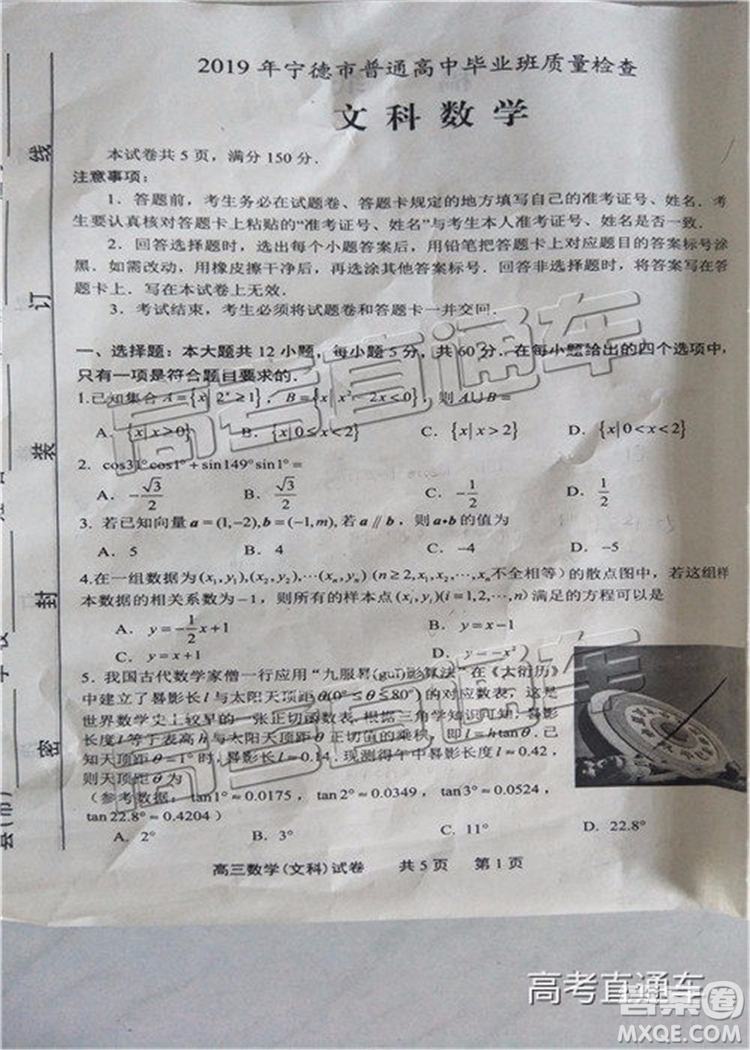 2019 年宁德市普通高中毕业班质量检查
文科数学
本试卷共 5 页，满分 150 分．
注意事项：
1．答题前，考生务必在试题卷、答题卡规定的地方填写自己的准考证号、姓名．考
生要认真核对答题卡上粘贴的“准考证号、姓名”与考生本人准考证号、姓名是否一致．
2．回答选择题时，选出每个小题答案后，用铅笔把答题卡上对应题目的答案标号涂
黑．如需改动，用橡皮擦干净后，再选涂其他答案标号．回答非选择题时，将答案写在答
题卡上．写在本试卷上无效．
3．考试结束，考生必须将试题卷和答题卡一并交回．
一、选择题：本大题共 12 小题，每小题 5 分，共 60 分．在每小题给出的四个选项中，
只有一项是符合题目要求的．
1.已知集合 A={x| 2ˣ≥1}，B={x| x²−2x≤0}，则 A∪B=
A．{x|x≥0} B．{x|0≤x≤2} C．{x|x>2} D．{x|0<x≤2}
2．cos31°cos1°+sin149°sin1°=
A．−√3/2 B．√3/2 C．−1/2 D．1/2
3．若已知向量 a=(1,−2),b=(−1,m),若 a∥b，则 a•b 的值为
A．5 B．4 C．−4 D．−5
4.在一组数据为(x₁,y₁),(x₂,y₂),⋯(xₙ,yₙ) (n≥2,x₁,x₂,⋯,xₙ不全相等) 的散点图中，若这组样
本数据的相关系数为−1，则所有的样本点(xᵢ,yᵢ)(i=1,2,⋯,n)满足的方程可以是
A．y=−1/2x+1 B．y=x−1
C．y=x+1 D．y=−x²
5．我国古代数学家僧一行应用“九服晷(guǐ)影算法”在《大衍历》
中建立了晷影长l与太阳天顶距θ(0°≤θ≤80°)的对应数表，这是
世界数学史上较早的一张正切函数表．根据三角学知识可知，晷影
长度l等于表高h与太阳天顶距θ正切值的乘积，即l=htanθ．已
知天顶距θ=1°时，晷影长l≈0.14．现测得午中晷影长度l≈0.42，
则天顶距θ为
（参考数据：tan1°≈0.0175，tan2°≈0.0349，tan3°≈0.0524，
tan22.8°≈0.4204）
A．2° B．3° C．11° D．22.8°
高三数学(文科)试卷 共 5 页 第 1 页
线
订
装
封
密
高考直通车
高考直通车
高考直通车
答案圈
MXQE.COM